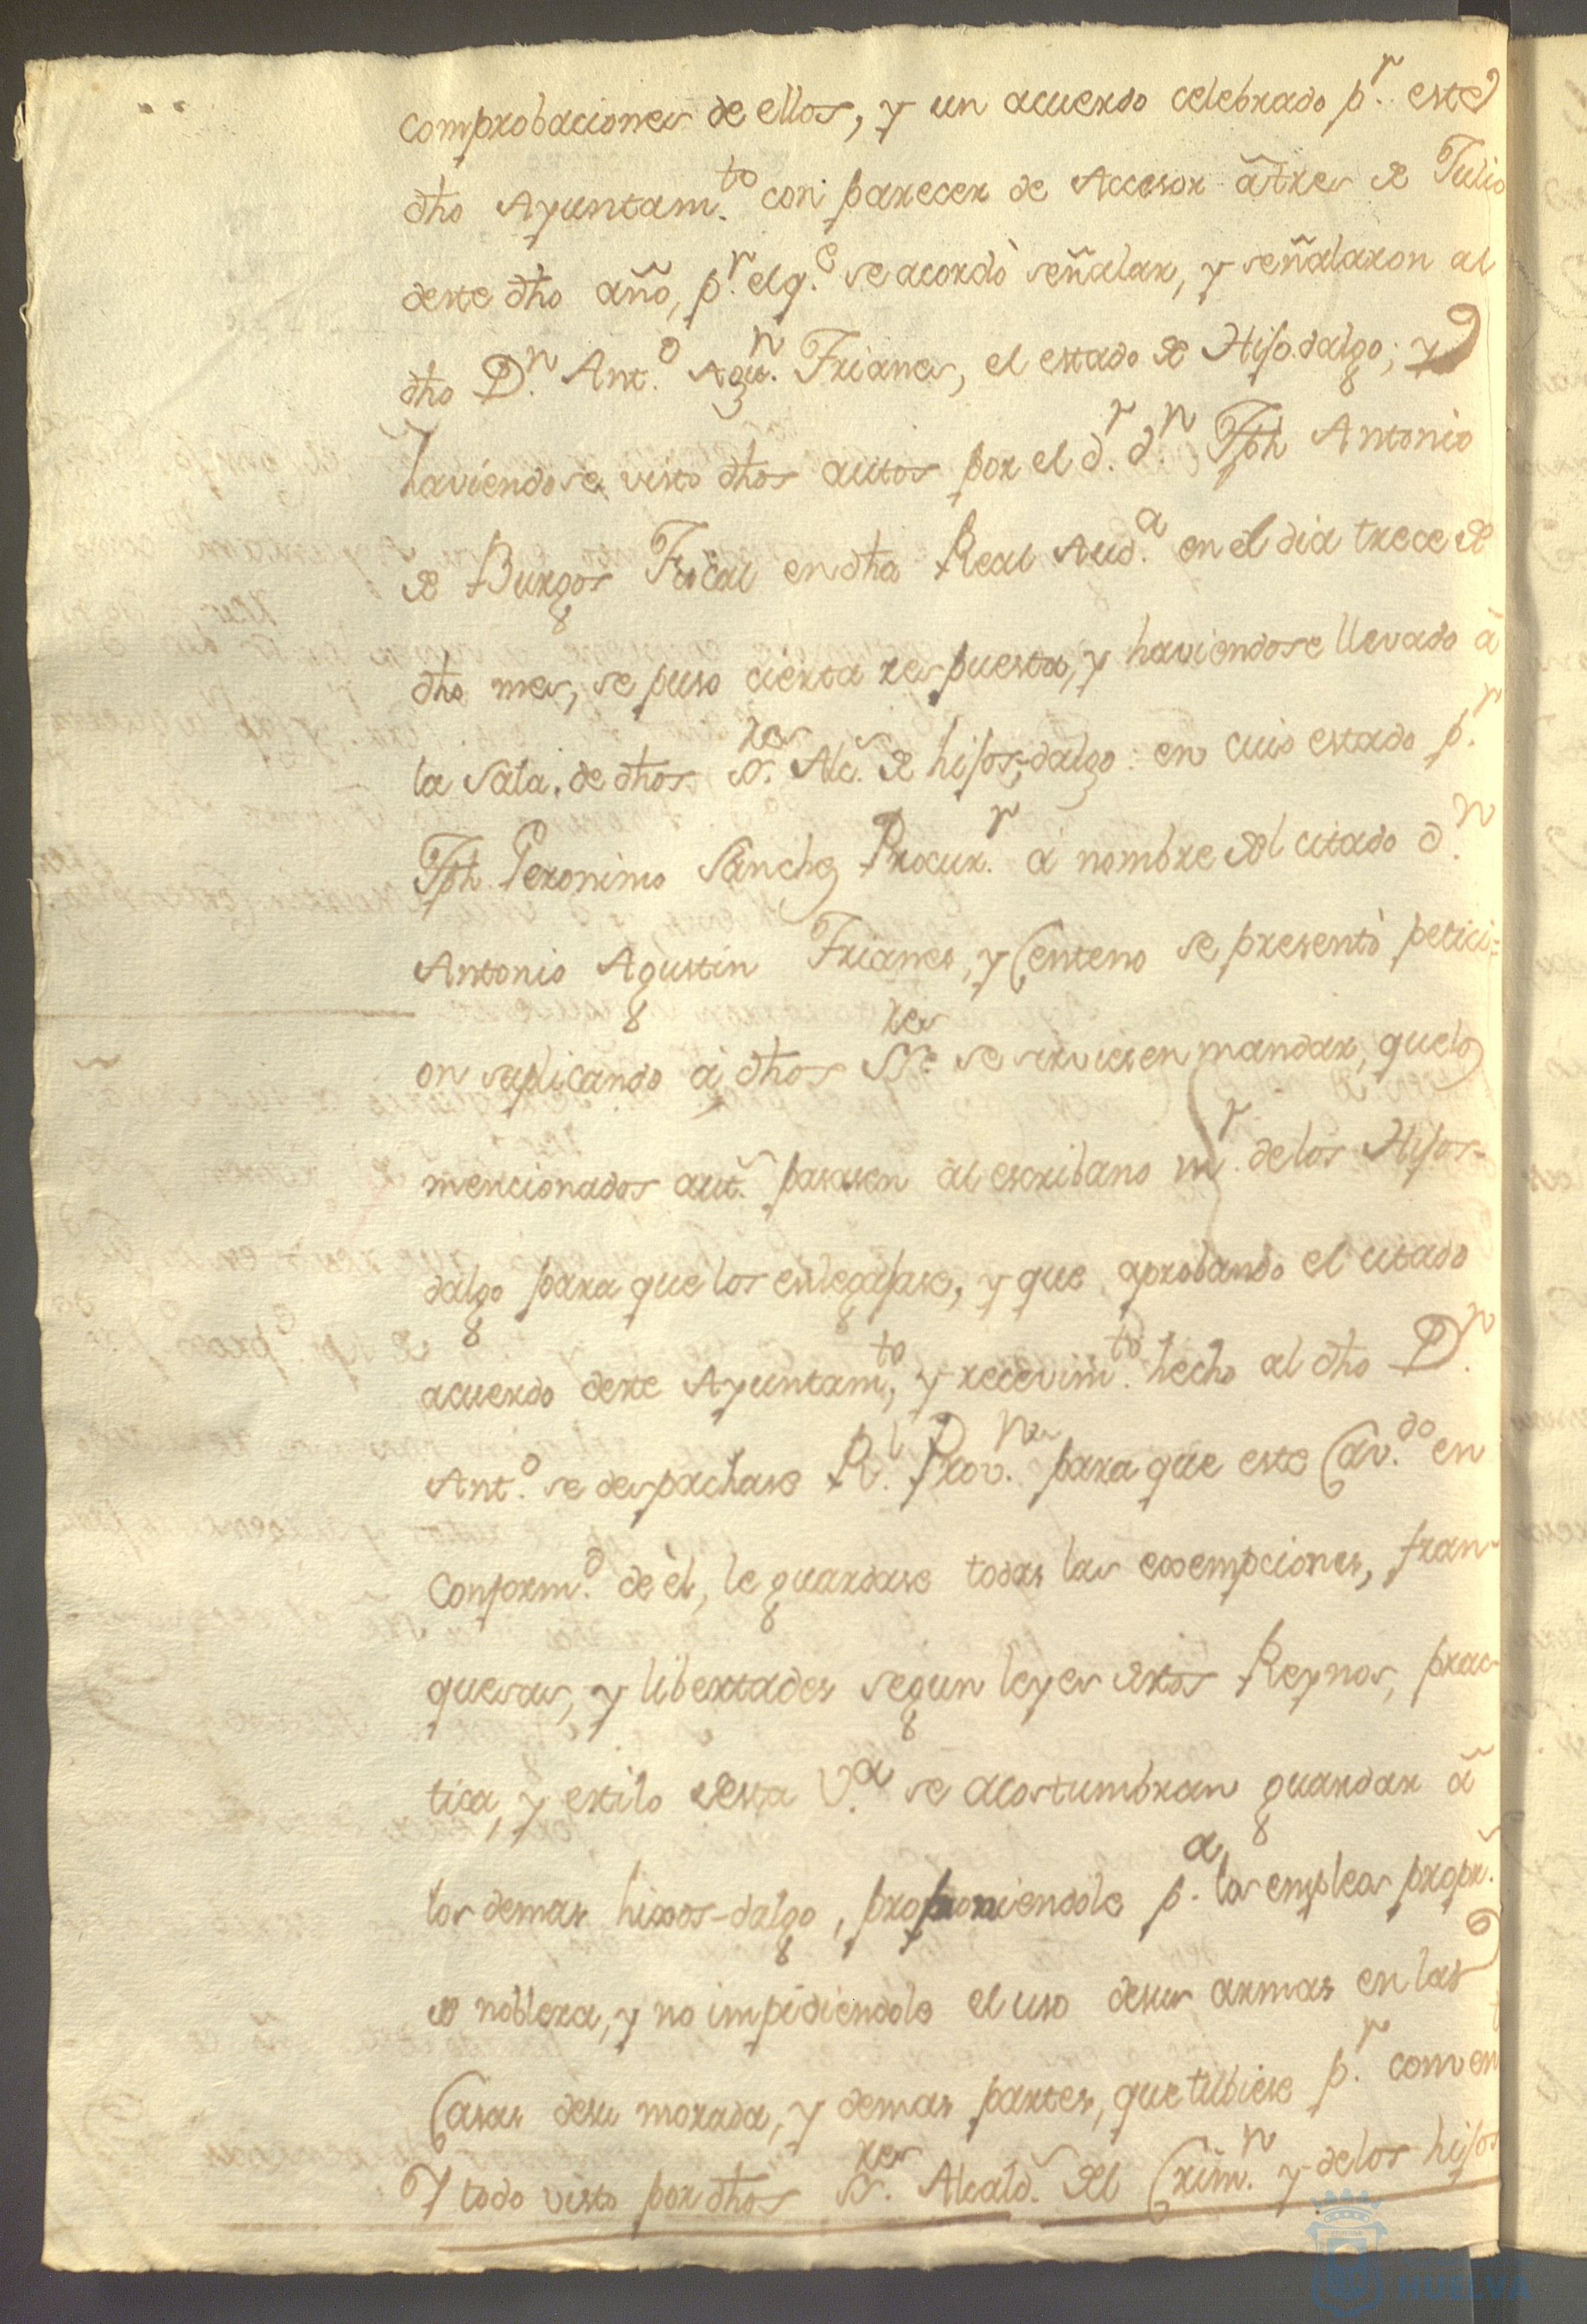 comprobaciones de ellos, y un acuerdo celebrado p.r este
dho Ayuntam.to con parecer de Accesor â tres de Julio
deste dho año, p.r el q.e se acordò señalar, y señalaron al
dho D.n Ant.o Agu.n Frianes, el estado de Hijodalgo; y
haviendose visto dhos autos por el d.r d.n Jph Antonio
de Burgos Fiscal en dha Real Aud.a en el dia trece de
dho mes, se puso cierta respuesta, y haviendose llevado â
la Sala, de dhos S.res Alc.s de hijos-dalgo: en cuio estado p.r
Jph. Geronimo Sanchez Procur.r a nombre del citado d.n
Antonio Agustin Frianes, y Centeno se presentò petici=
on suplicando à dhos S.res se sirviesen mandar, que los
mencionados aut.s pasasen al escribano m.r de los Hijos=
dalgo para que los enlegajase, y que aprobando el citado
acuerdo deste Ayuntam.to, y recevim.to hecho al dho D.n
Ant.o se despachase R.l Prov.n para que este Cav.do en
conform.d de èl, le guardase todas las exempciones, fran-
quesas, y libertades segun leyes destos Reynos, prac-
tica, y estilo desta V.a se acostumbran guardar â
los demas hixos-dalgo, proponiendole p.a los empleos propr.s
de nobleza, y no impidiendole el uso desus armas en las
Casas desu morada, y demas partes, que tubiese p.r conven.t
Y todo visto por dhos S.res Alcald.s del Crim.n y delos hijos
HUELVA